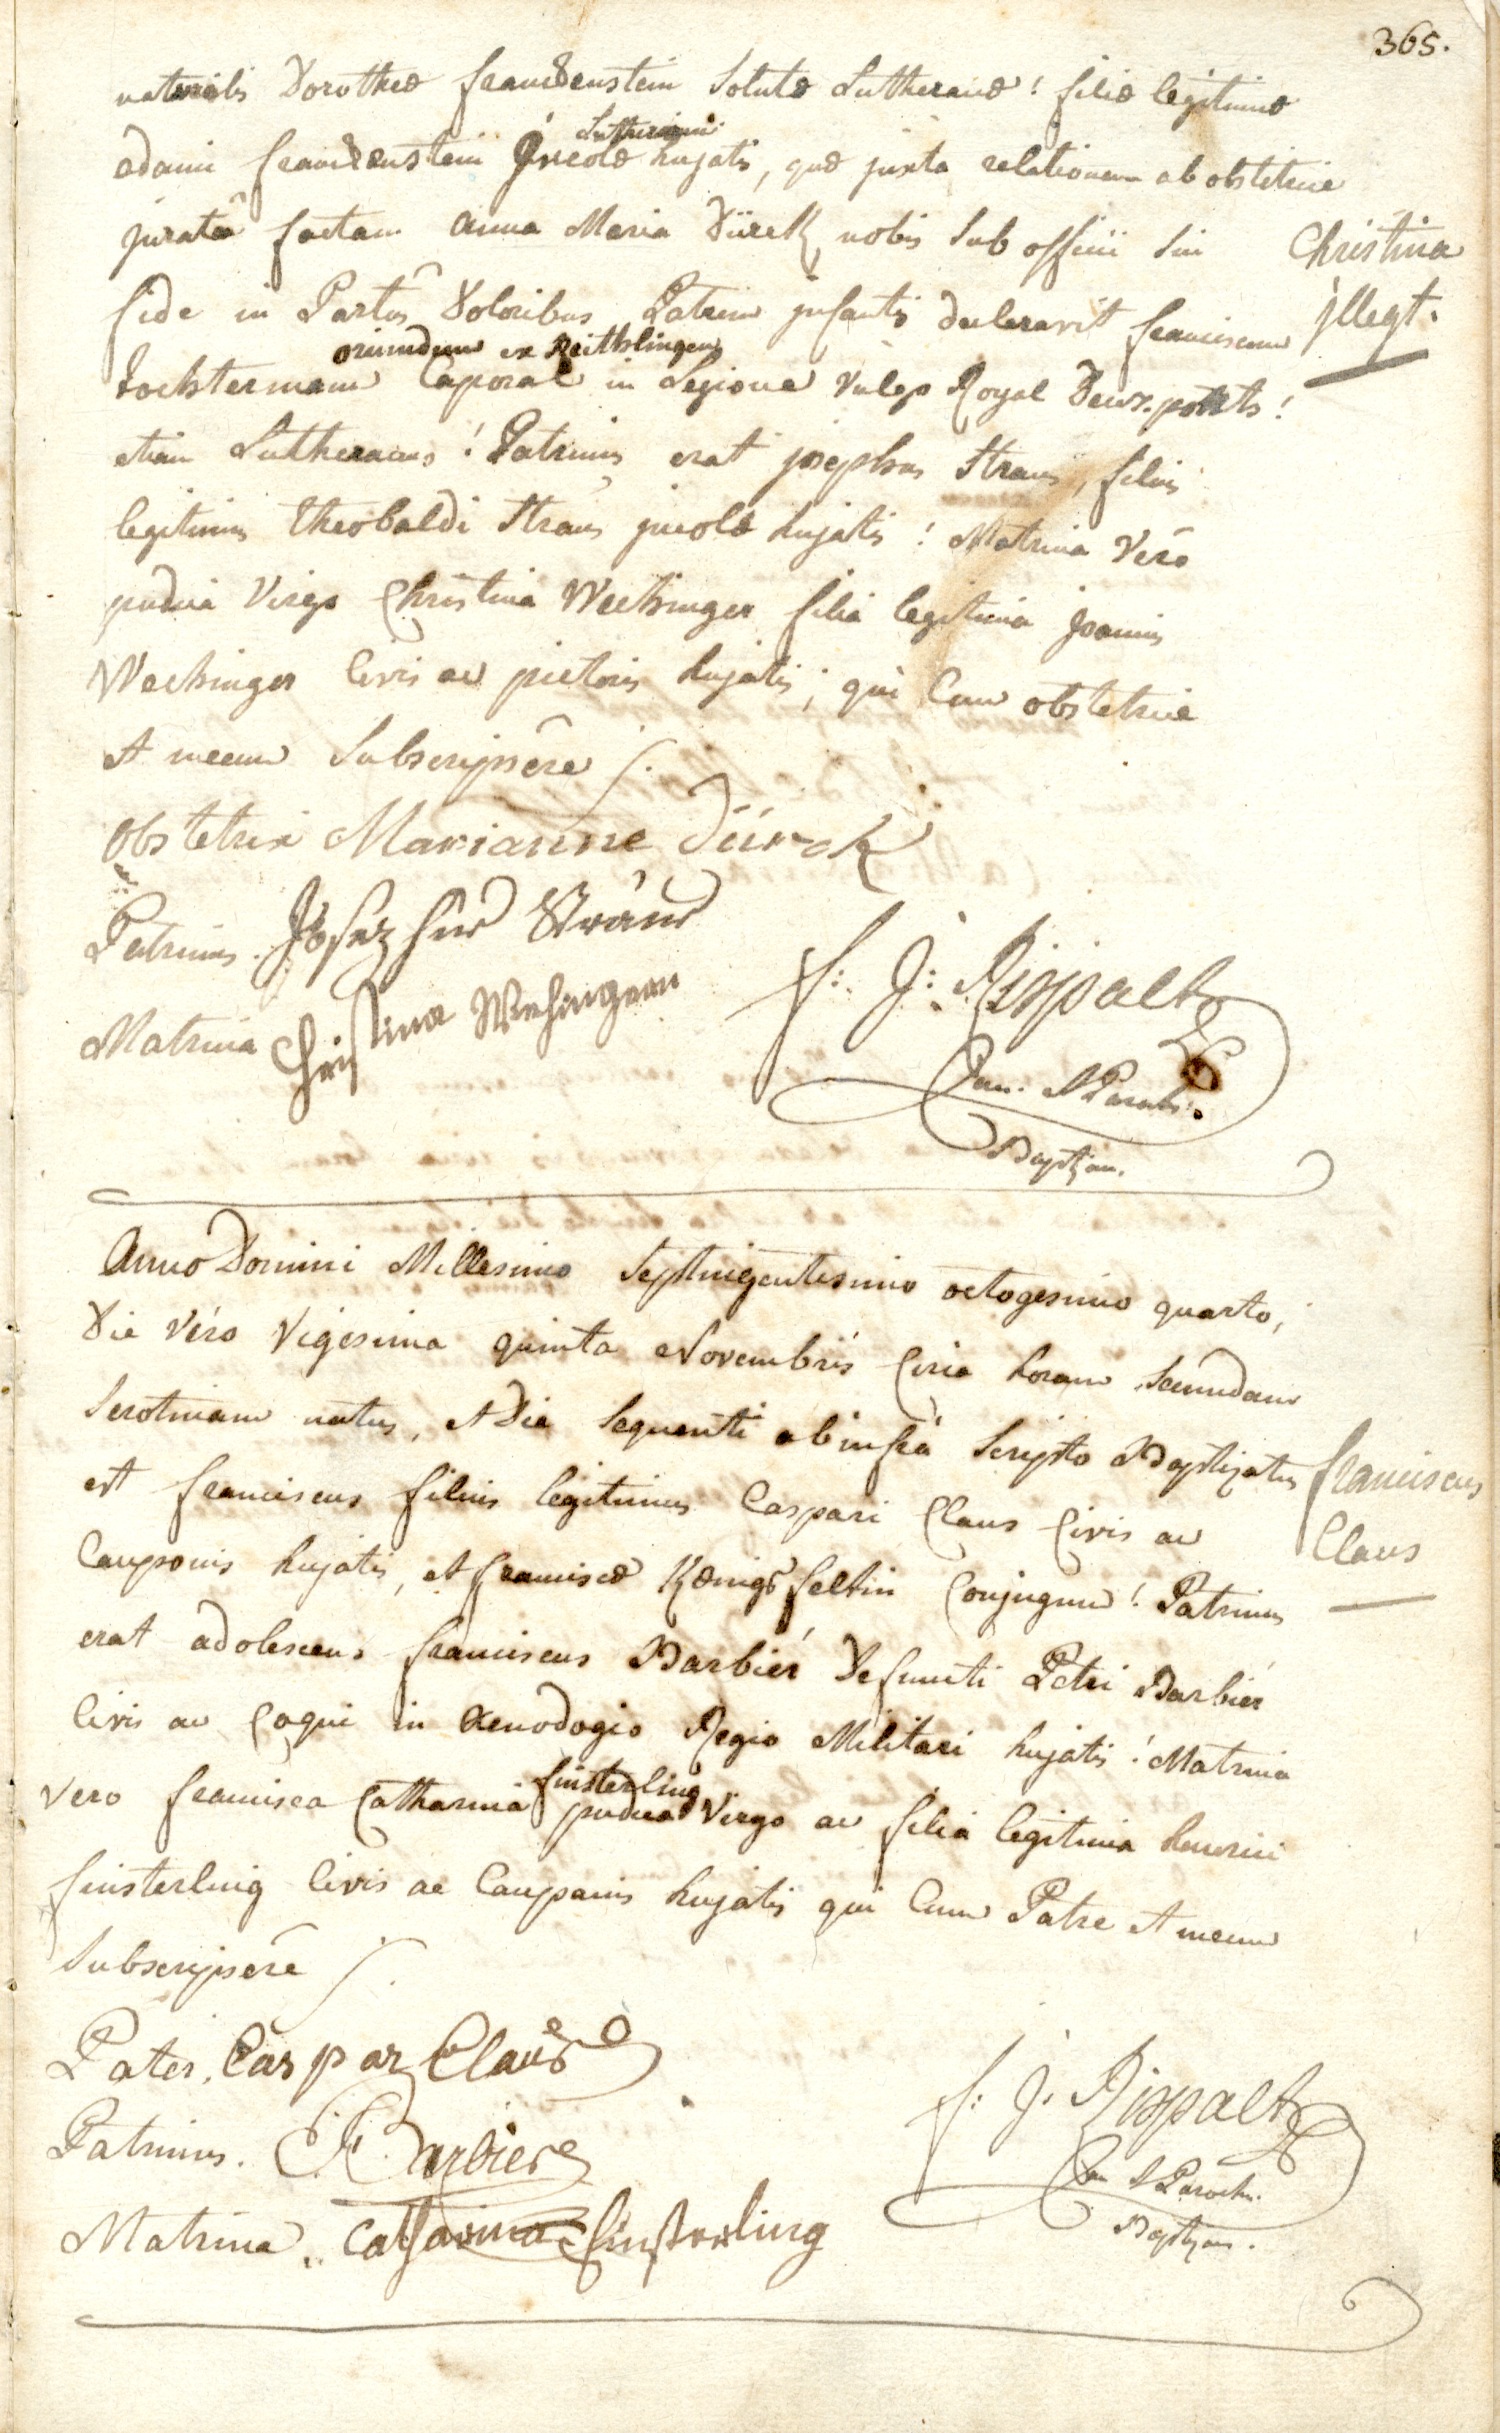 365.
naturalis Dorotheæ franckenstein Solutæ Lutheranæ! filiæ legitimæ
Lutherani
adami franckenstein Jncolæ hujatis, quæ juxta relationem ab obstetrice
juratâ factam anna Maria Dürck nobis Sub officii Sui
Christina
fide in Partûs Doloribus Patrem jnfantis declaravit franciscum
jllegt.
oriundum ex Reithlingen
Lochtermann Caporal in Legione vulgo Royal Deux-ponts!
etiam Lutheranus! Patrinus erat josephus Straus, filius
legitimus theobaldi Straus jncolæ hujatis! Matrina verò
pudica Virgo Christina Wechinger filia legitima joannis
Wechinger Civis ac pictoris hujatis; qui Cum obstetrice
et mecum Subscripsêre /.
obstetrix Marianne Dürck
Patrinus. Josez Straus
Matrina Christina Wehingerin
f: J: Rispalt
Can. et Paroch:
Baptizans.
Anno Domini Millesimo Septingentesimo octogesimo quarto,
Die véro vigesima quinta Novembris Circa horam Secundam
Serotinam natus, et Die Sequenti ab infrà Scripto Baptizatus
franciscus
est franciscus filius legitimus Caspari Claus Civis ac
Claus
Cauponis hujatis, et franciscæ Kœnigsfeltin Conjugum! Patrinus
erat adolescens franciscus Barbiér Defuncti Petri Barbiér
Civis ac Coqui in Xenodogio Regio Militari hujatis! Matrina
finsterling
vero francisca Catharina pudica Virgo ac filia legitima henrici
finsterling Civis ac Cauponis hujatis qui Cum Patre et mecum
Subscripsêre /.
Pater. Caspar Claus
Patrinus. F. Barbier
Matrina. Catharina Finsterling
f: J: Rispalt
Can et Paroch.
Baptizans.